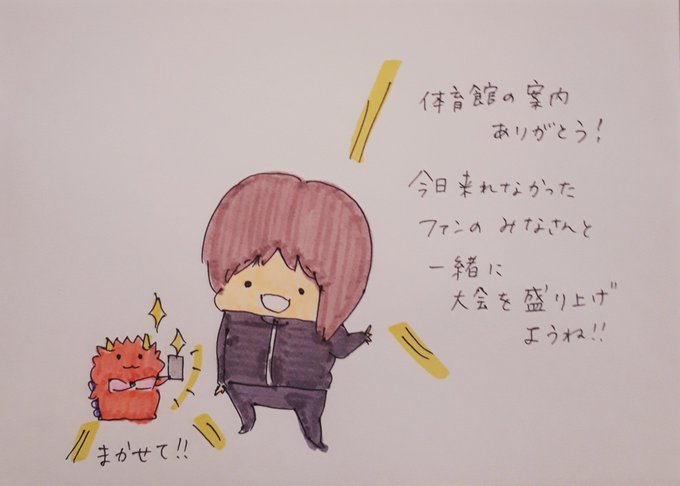 体育館の案内
ありがとう!
今日来れなかった
ファンのみなさんと
一緒に
大会を盛り上げ
ようね!!
まかせて!!